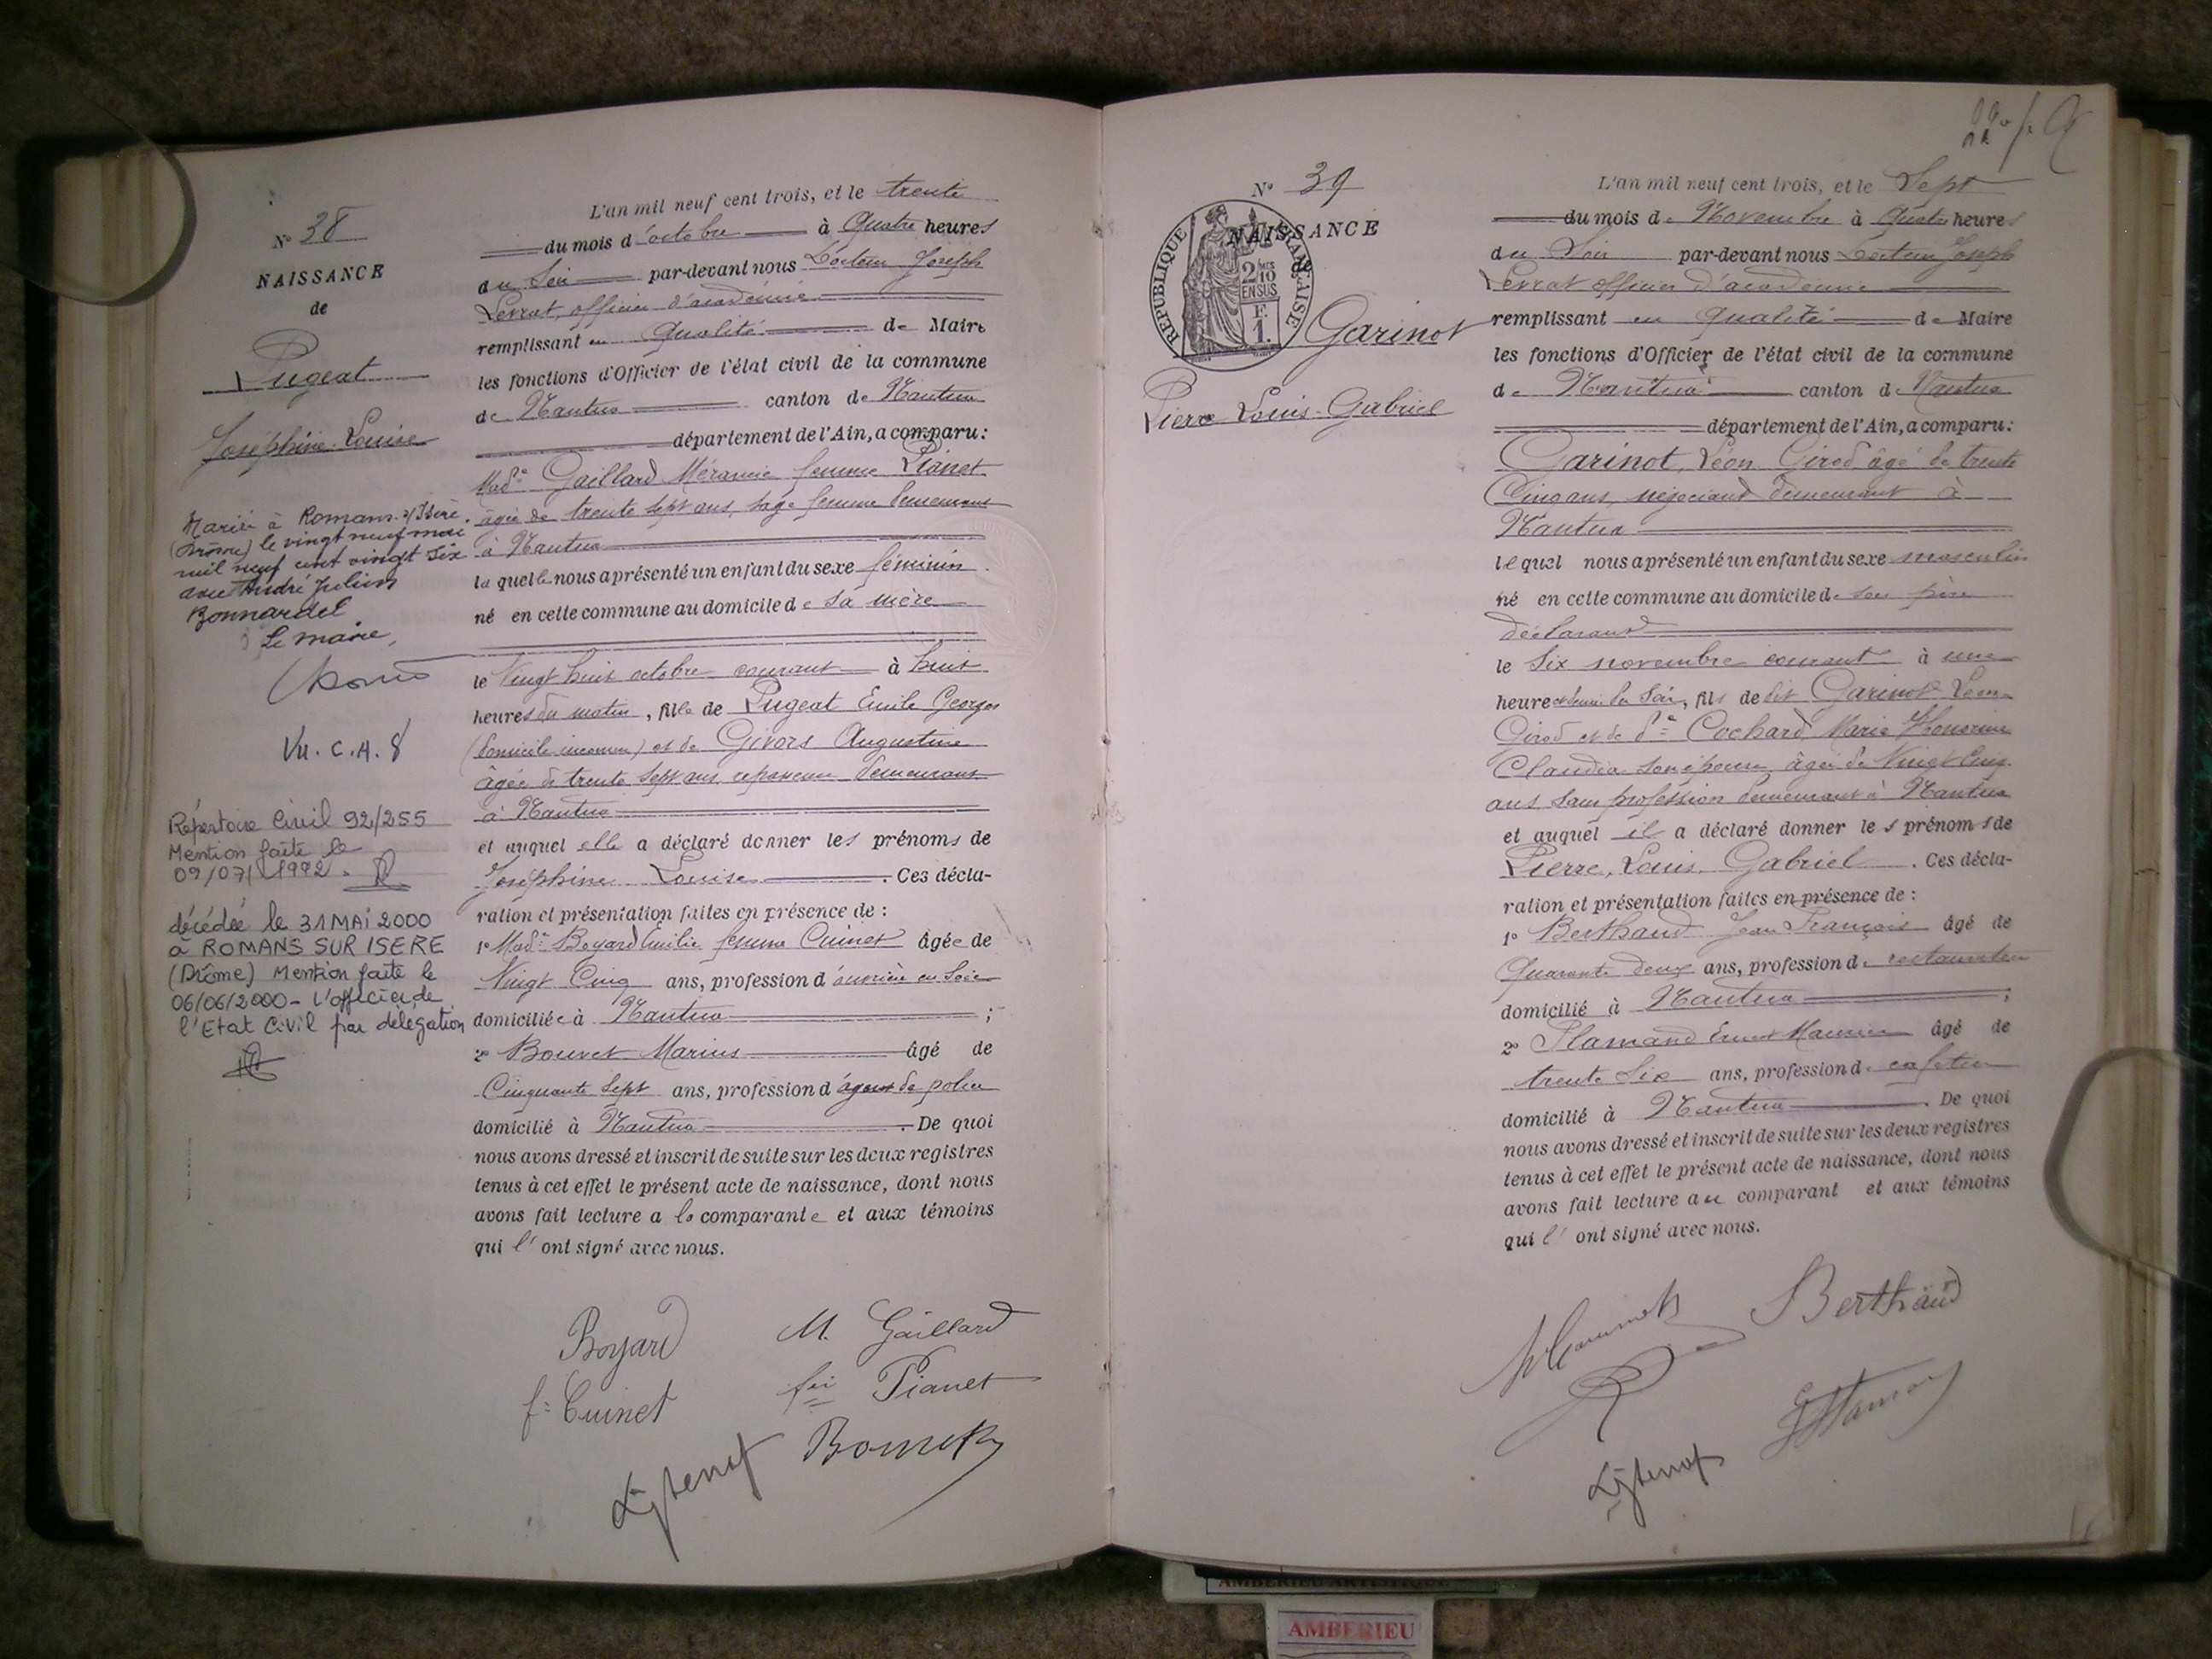 N° 38
NAISSANCE
de
Pugeat
Joséphine Louise
Mariée à Romans s/Isère
(Drôme) le vingt neuf mai
mil neuf cent vingt six
avec André Julien
Bonnardel
Le maire,
Vu. C.A. 8
Répertoire Civil 92/255
Mention faite le
09/07/1992.
décédée le 31 MAI 2000
à ROMANS SUR ISERE
(Drôme) Mention faite le
06/06/2000 - L'officier de
l'Etat Civil par délégation
L'an mil neuf cent trois, et le trente
du mois d'octobre à Quatre heures
du Soir par-devant nous Docteur Joseph
Levrat, officier d'académie
remplissant en qualité de Maire
les fonctions d'Officier de l'état civil de la commune
de Nantua canton de Nantua
département de l'Ain, a comparu:
Made Gaillard femme Pianet
âgée de trente sept ans, sage femme demeurant
à Nantua
laquelle nous a présenté un enfant du sexe féminin
né en cette commune au domicile de sa mère
le Vingt huit octobre courant à huit
heures du matin, fille de Pugeat Emile Georges
(domicile inconnu) et de Givors Augustine
âgée de trente sept ans, demeurant
à Nantua
et auquel elle a déclaré donner les prénoms de
Joséphine Louise. Ces décla-
ration et présentation faites en présence de :
1° Made Boyard Emilie femme Cuinet âgée de
Vingt Cinq ans, profession d'ouvrière en soie
domiciliée à Nantua ;
2° Bouvet Marius âgé de
Cinquante sept ans, profession d'agent de police
domicilié à Nantua. De quoi
nous avons dressé et inscrit de suite sur les deux registres
tenus à cet effet le présent acte de naissance, dont nous
avons fait lecture a la comparante et aux témoins
qui l' ont signé avec nous.
Boyard M. Gaillard
f= Cuinet Pianet
Bouvet
N° 39
NAISSANCE
de
REPUBLIQUE FRANÇAISE
2/10 EN SUS
F.
1.
Garinot
Pierre Louis-Gabriel
L'an mil neuf cent trois, et le Sept
du mois de Novembre à Quatre heures
du Soir par-devant nous Docteur Joseph
Levrat officier d'académie
remplissant en qualité de Maire
les fonctions d'Officier de l'état civil de la commune
de Nantua canton de Nantua
département de l'Ain, a comparu:
Garinot, Léon Girod âgé de trente
Cinq ans, négociant demeurant à
Nantua
lequel nous a présenté un enfant du sexe masculin
né en cette commune au domicile de son père
déclarant
le Six novembre courant à une
heure et demie du soir, fils de dit Garinot Léon
Girod et de de Cochard Marie Honorine
Claudia son épouse âgée de Vingt Cinq
ans, sans profession demeurant à Nantua
et auquel il a déclaré donner les prénoms de
Pierre, Louis, Gabriel. Ces décla-
ration et présentation faites en présence de :
1° Berthaud Jean François âgé de
Quarante deux ans, profession de restaurateur
domicilié à Nantua ;
2° Flamand Ernest Maurice âgé de
trente Six ans, profession de cafetier
domicilié à Nantua. De quoi
nous avons dressé et inscrit de suite sur les deux registres
tenus à cet effet le présent acte de naissance, dont nous
avons fait lecture au comparant et aux témoins
qui l' ont signé avec nous.
Berthaud
AMBERIEU